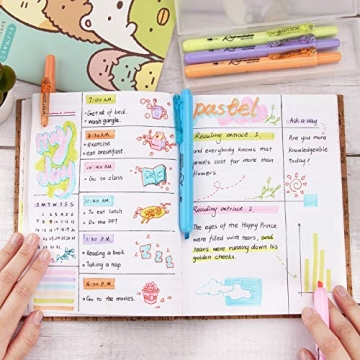 my
day
S M T W T F S
7:00 AM
• Get out of bed.
• wash gargle.
8:30 AM
• exercise
• eat breakfast.
• Go to class
• To eat lunch
• Do the PPT
• Reading a book
• Taking a nap
• Go to the movies.
pastel
Reading extract 1.
and everybody knows that
jewels cost far more than
flowers.
Reading extract 2.
The eyes of the Happy Prince
were filled with tears, and
tears were running down his
golden cheeks.
Are you more
knowledgeable
today?